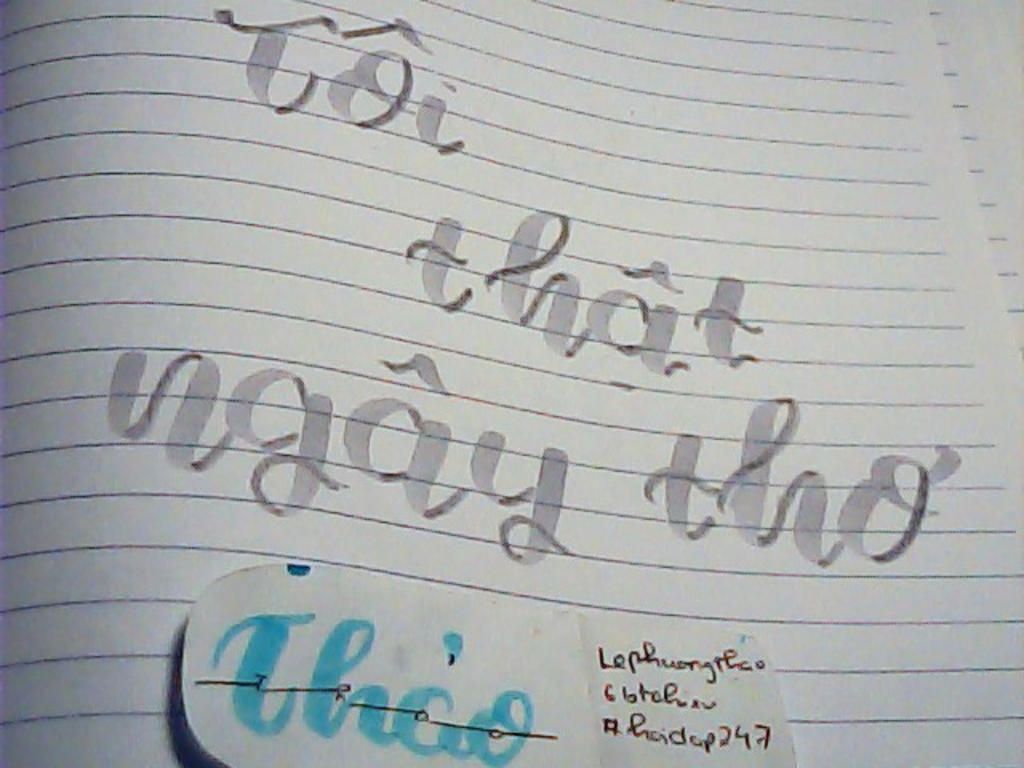 Tôi
thật
ngây thơ
Thảo
Lephuongthảo
#hoidap247